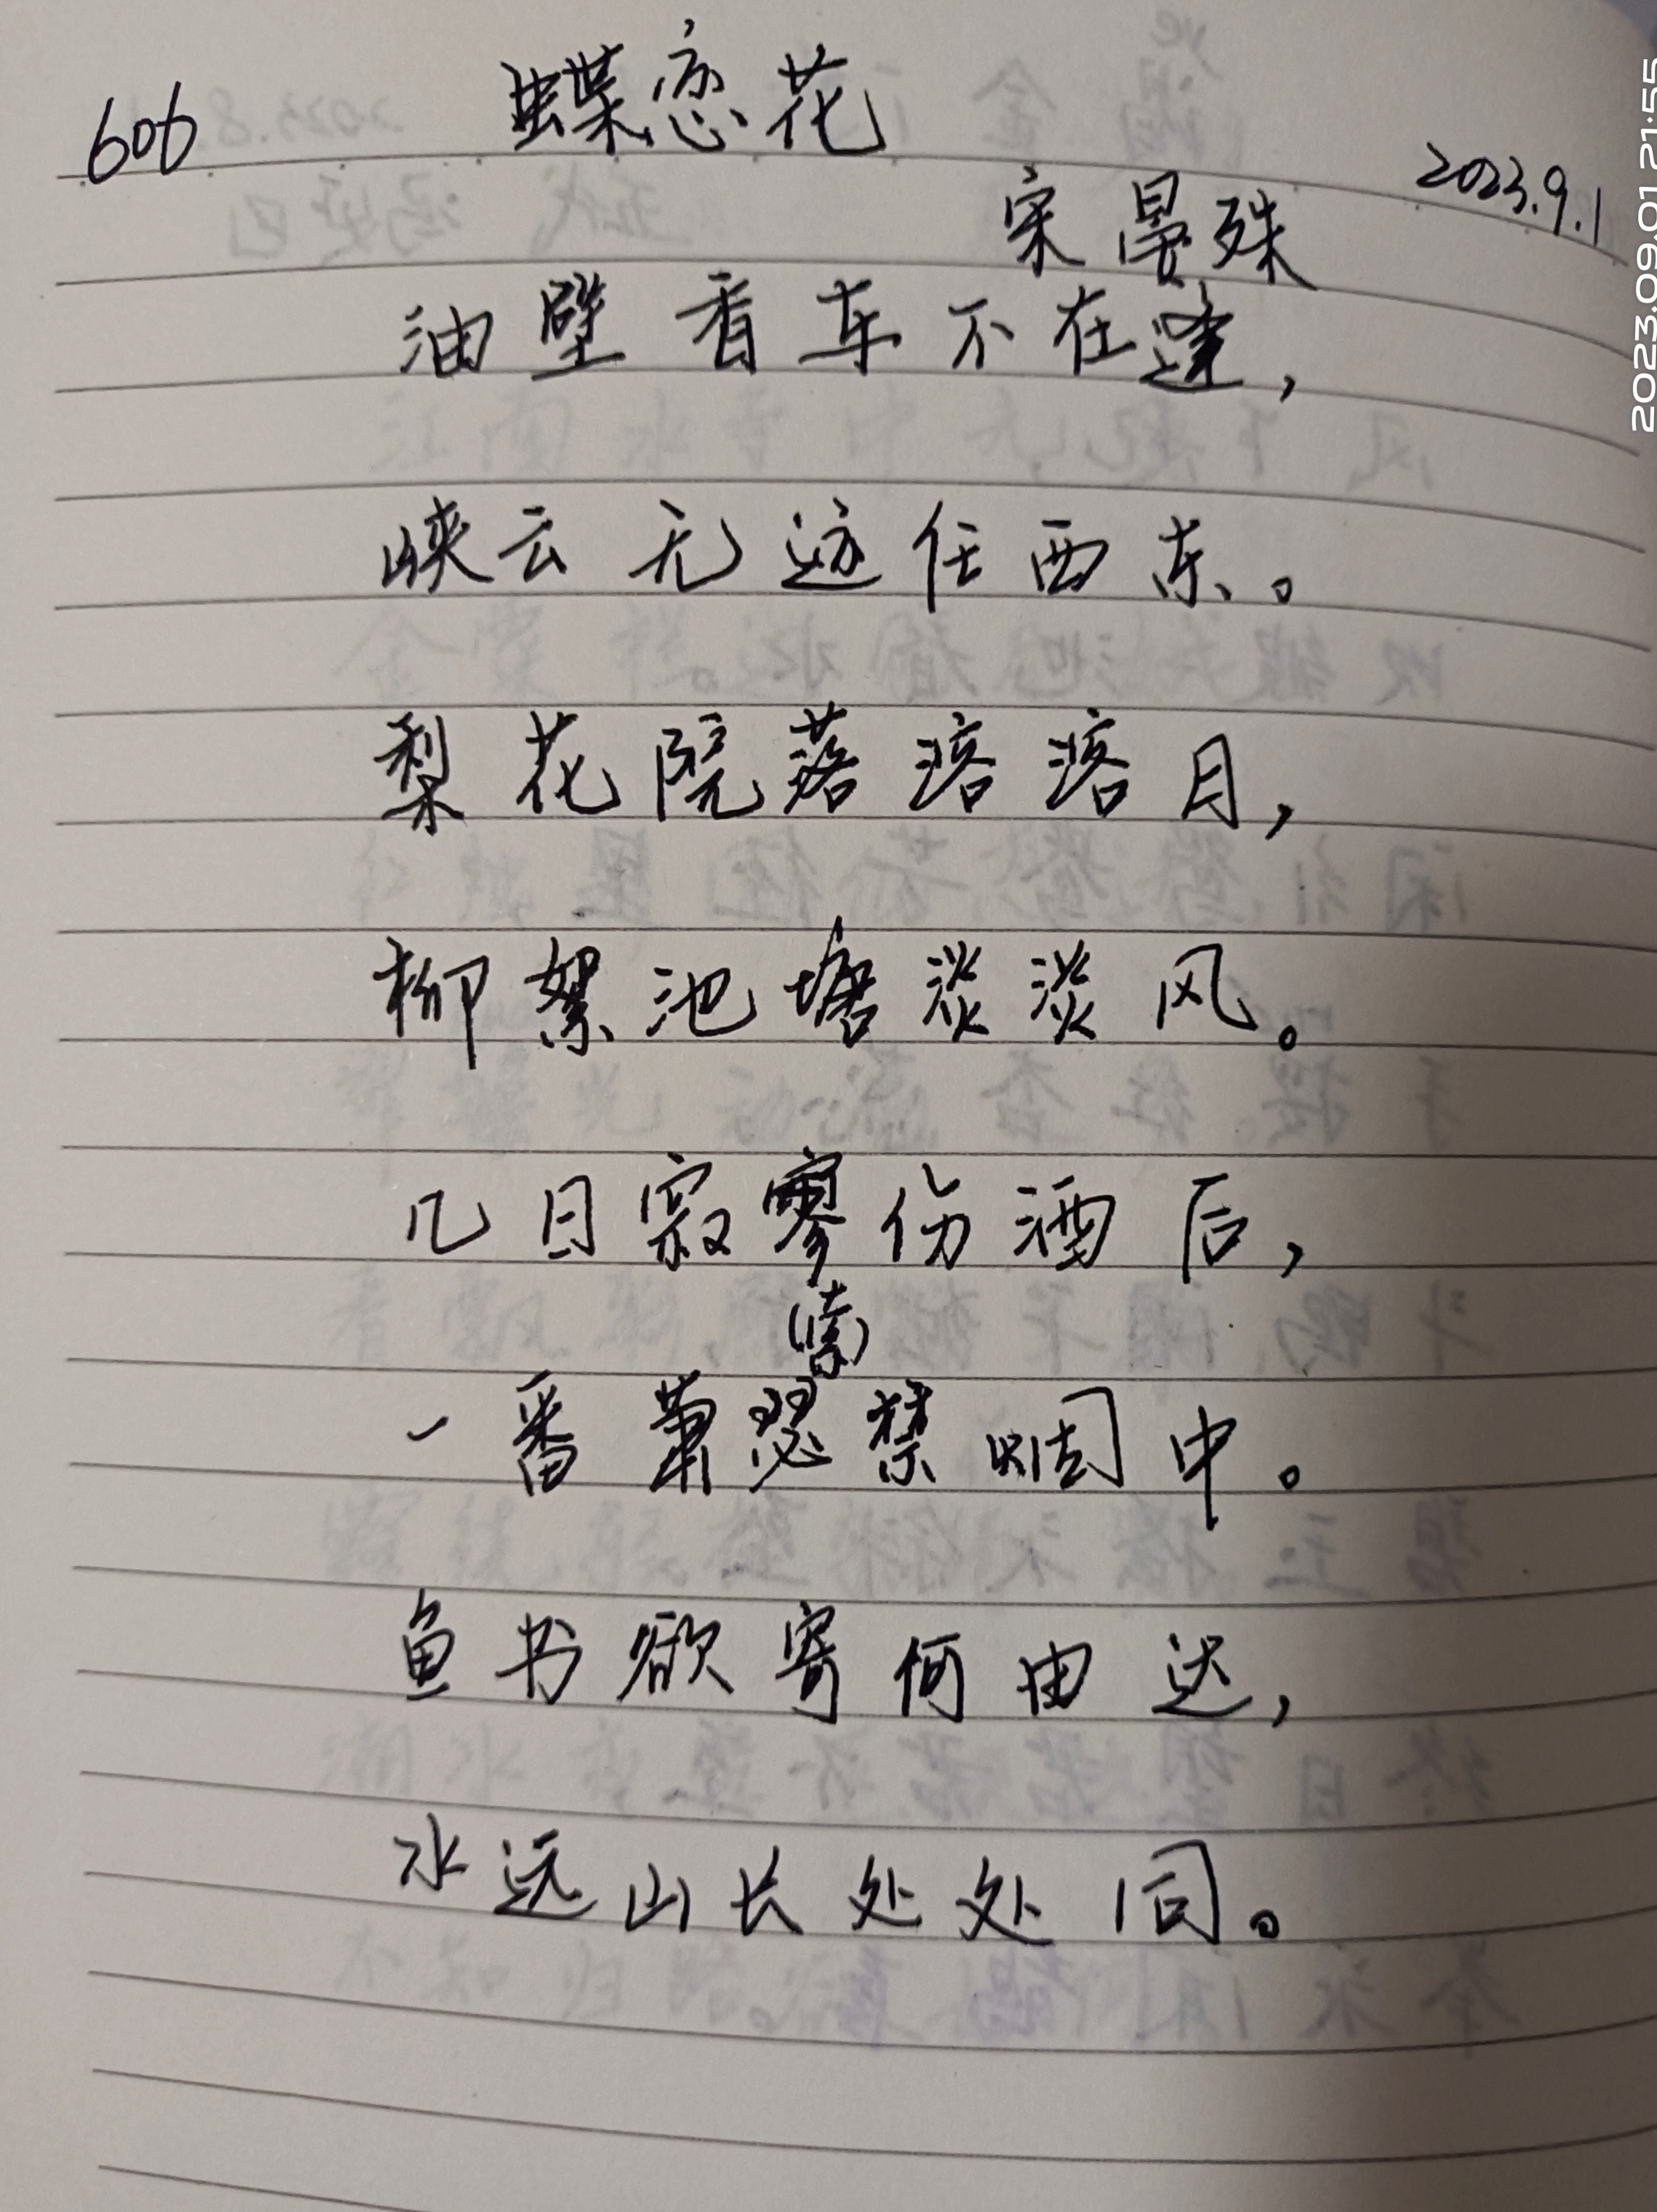 606 蝶恋花 2023.9.1
宋 晏殊
油壁香车不在逢，
峡云无迹任西东。
梨花院落溶溶月，
柳絮池塘淡淡风。
几日寂寥伤酒后，
(索)
一番萧瑟禁烟中。
鱼书欲寄何由达，
水远山长处处同。
2023.09.01 21:55